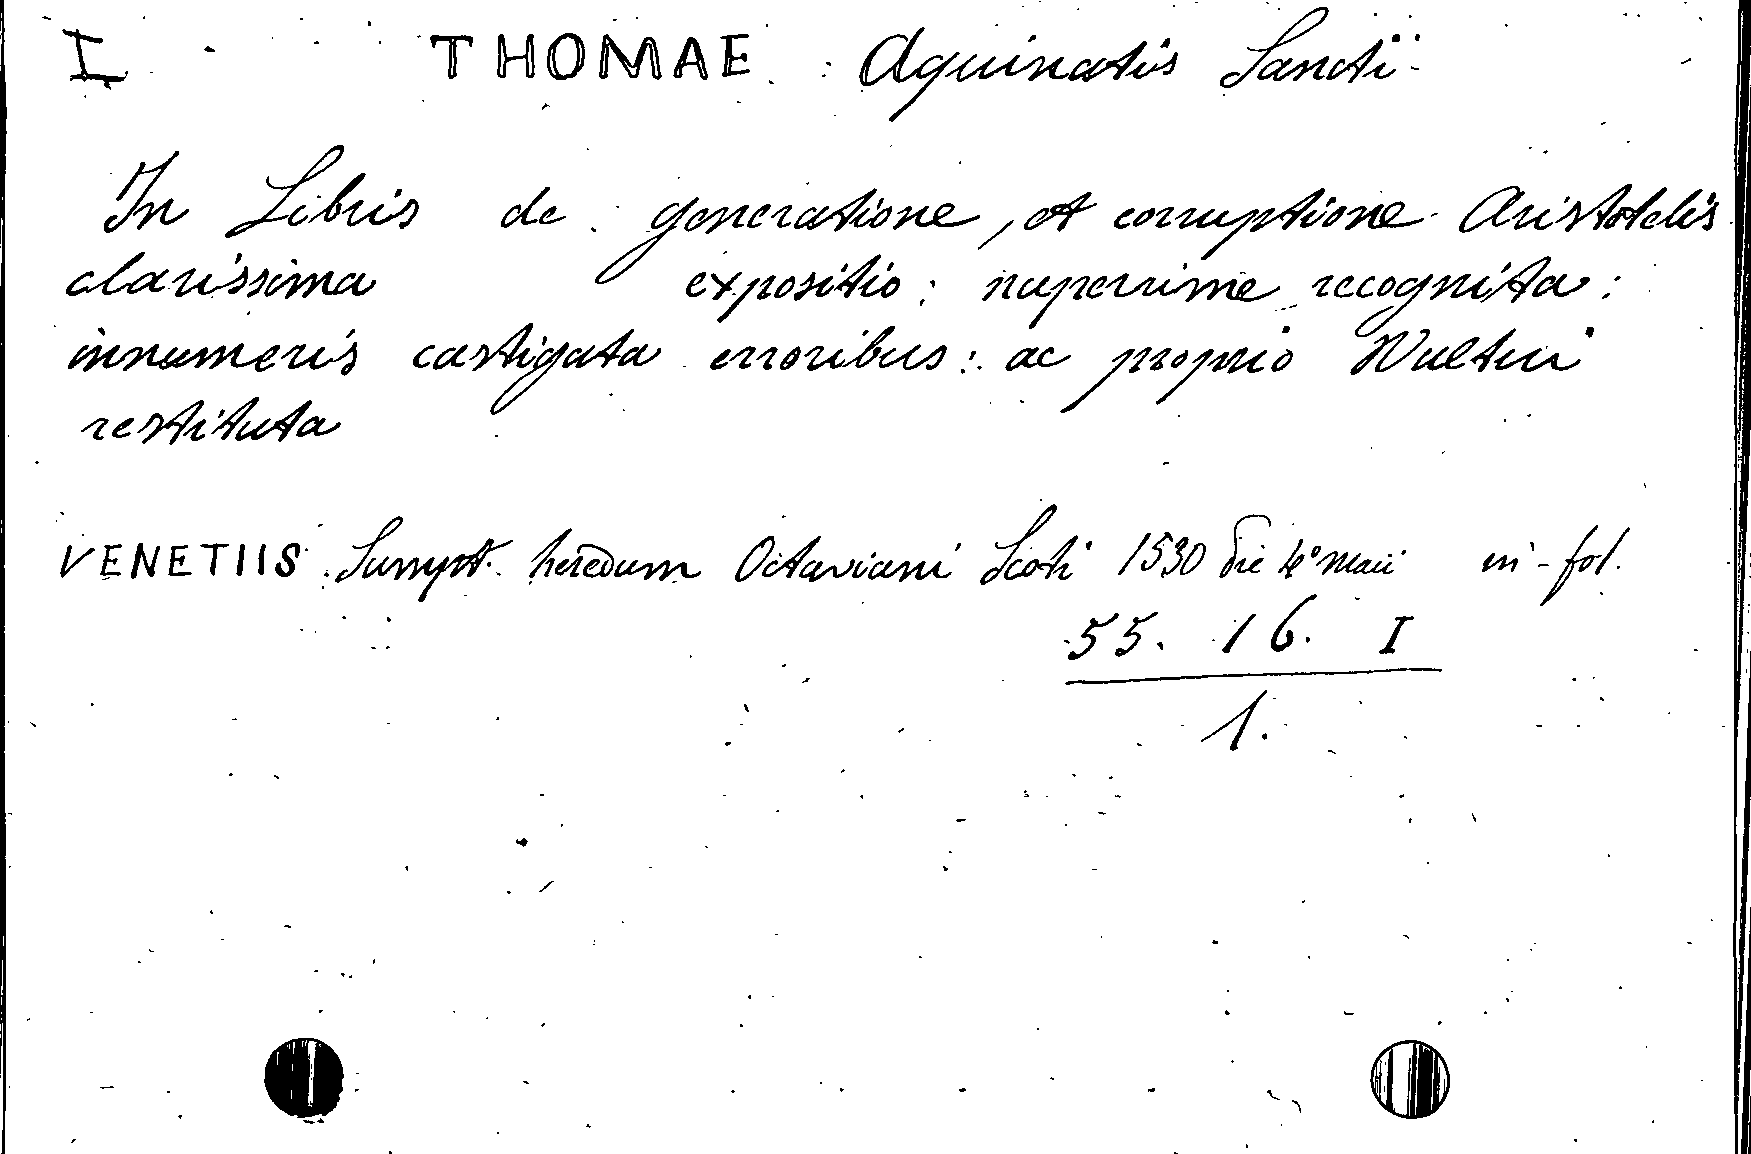 I THOMAE Aquinatis Sancti
In Libris de generatione, et corruptione Aristotelis
clarissima expositio: nuperrime recognita:
innumeris castigata erroribus: ac proprio Wultui
restituta
VENETIIS Sumpt. heredum Octaviani Scoti 1530 die 4º Maii in-fol.
55. 16. I
1.